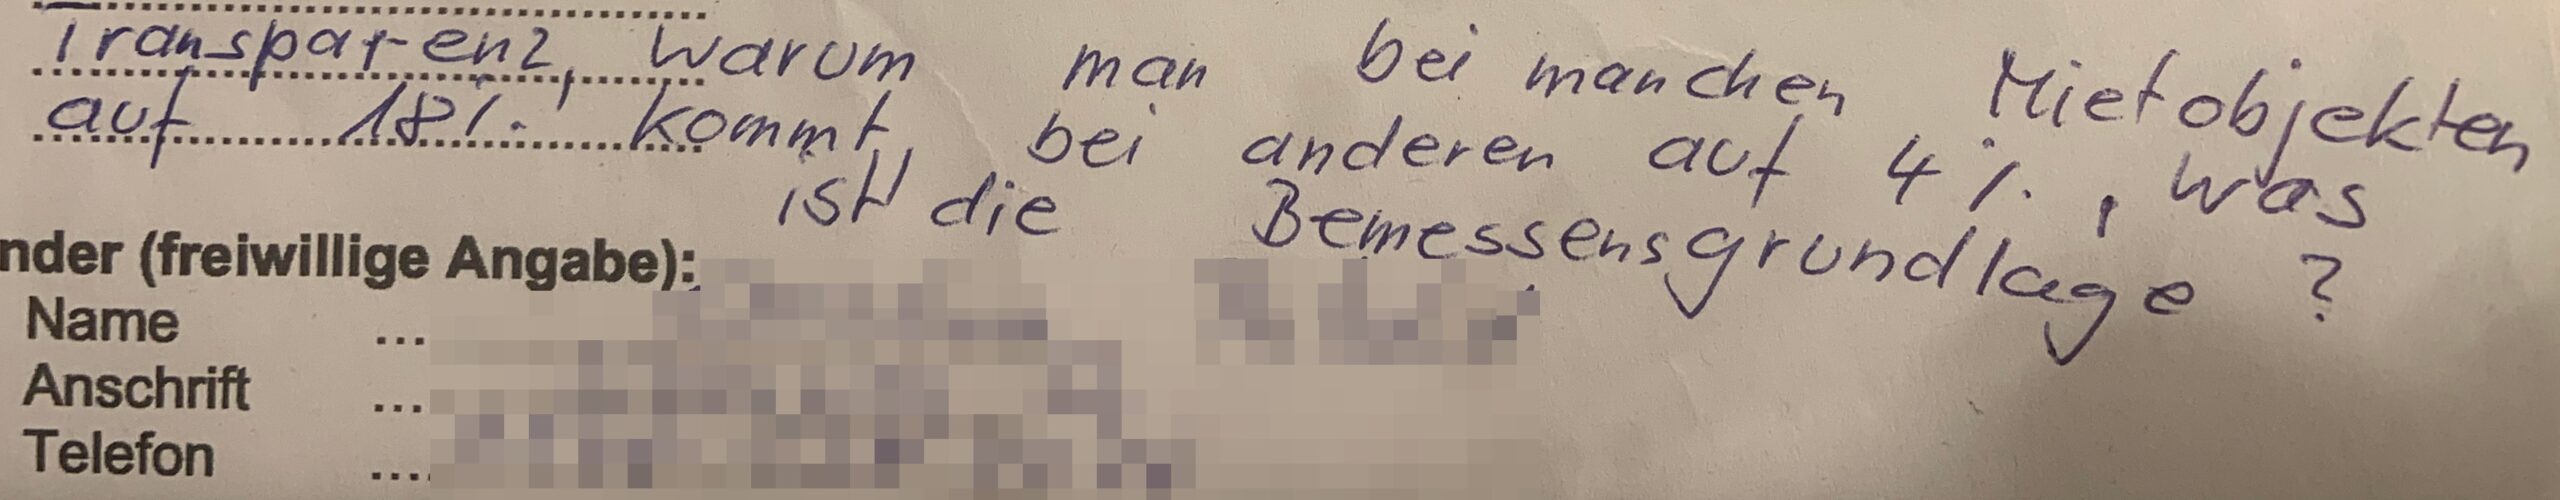 Transparenz, warum man bei manchen Mietobjekten
auf 18% kommt, bei anderen auf 4%, was
ist die Bemessensgrundlage?
nder (freiwillige Angabe):
Name ...
Anschrift ...
Telefon ....